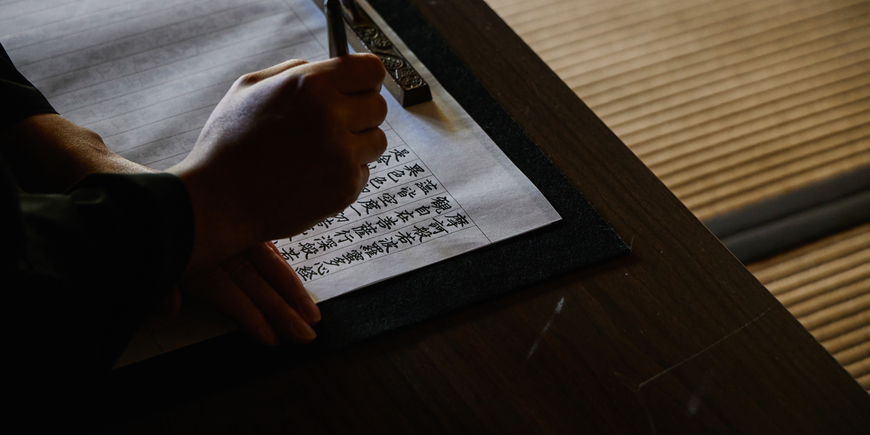 摩訶般若波羅蜜多心経
觀自在菩薩行深般若
蘊皆空度一切
異色色
是舎